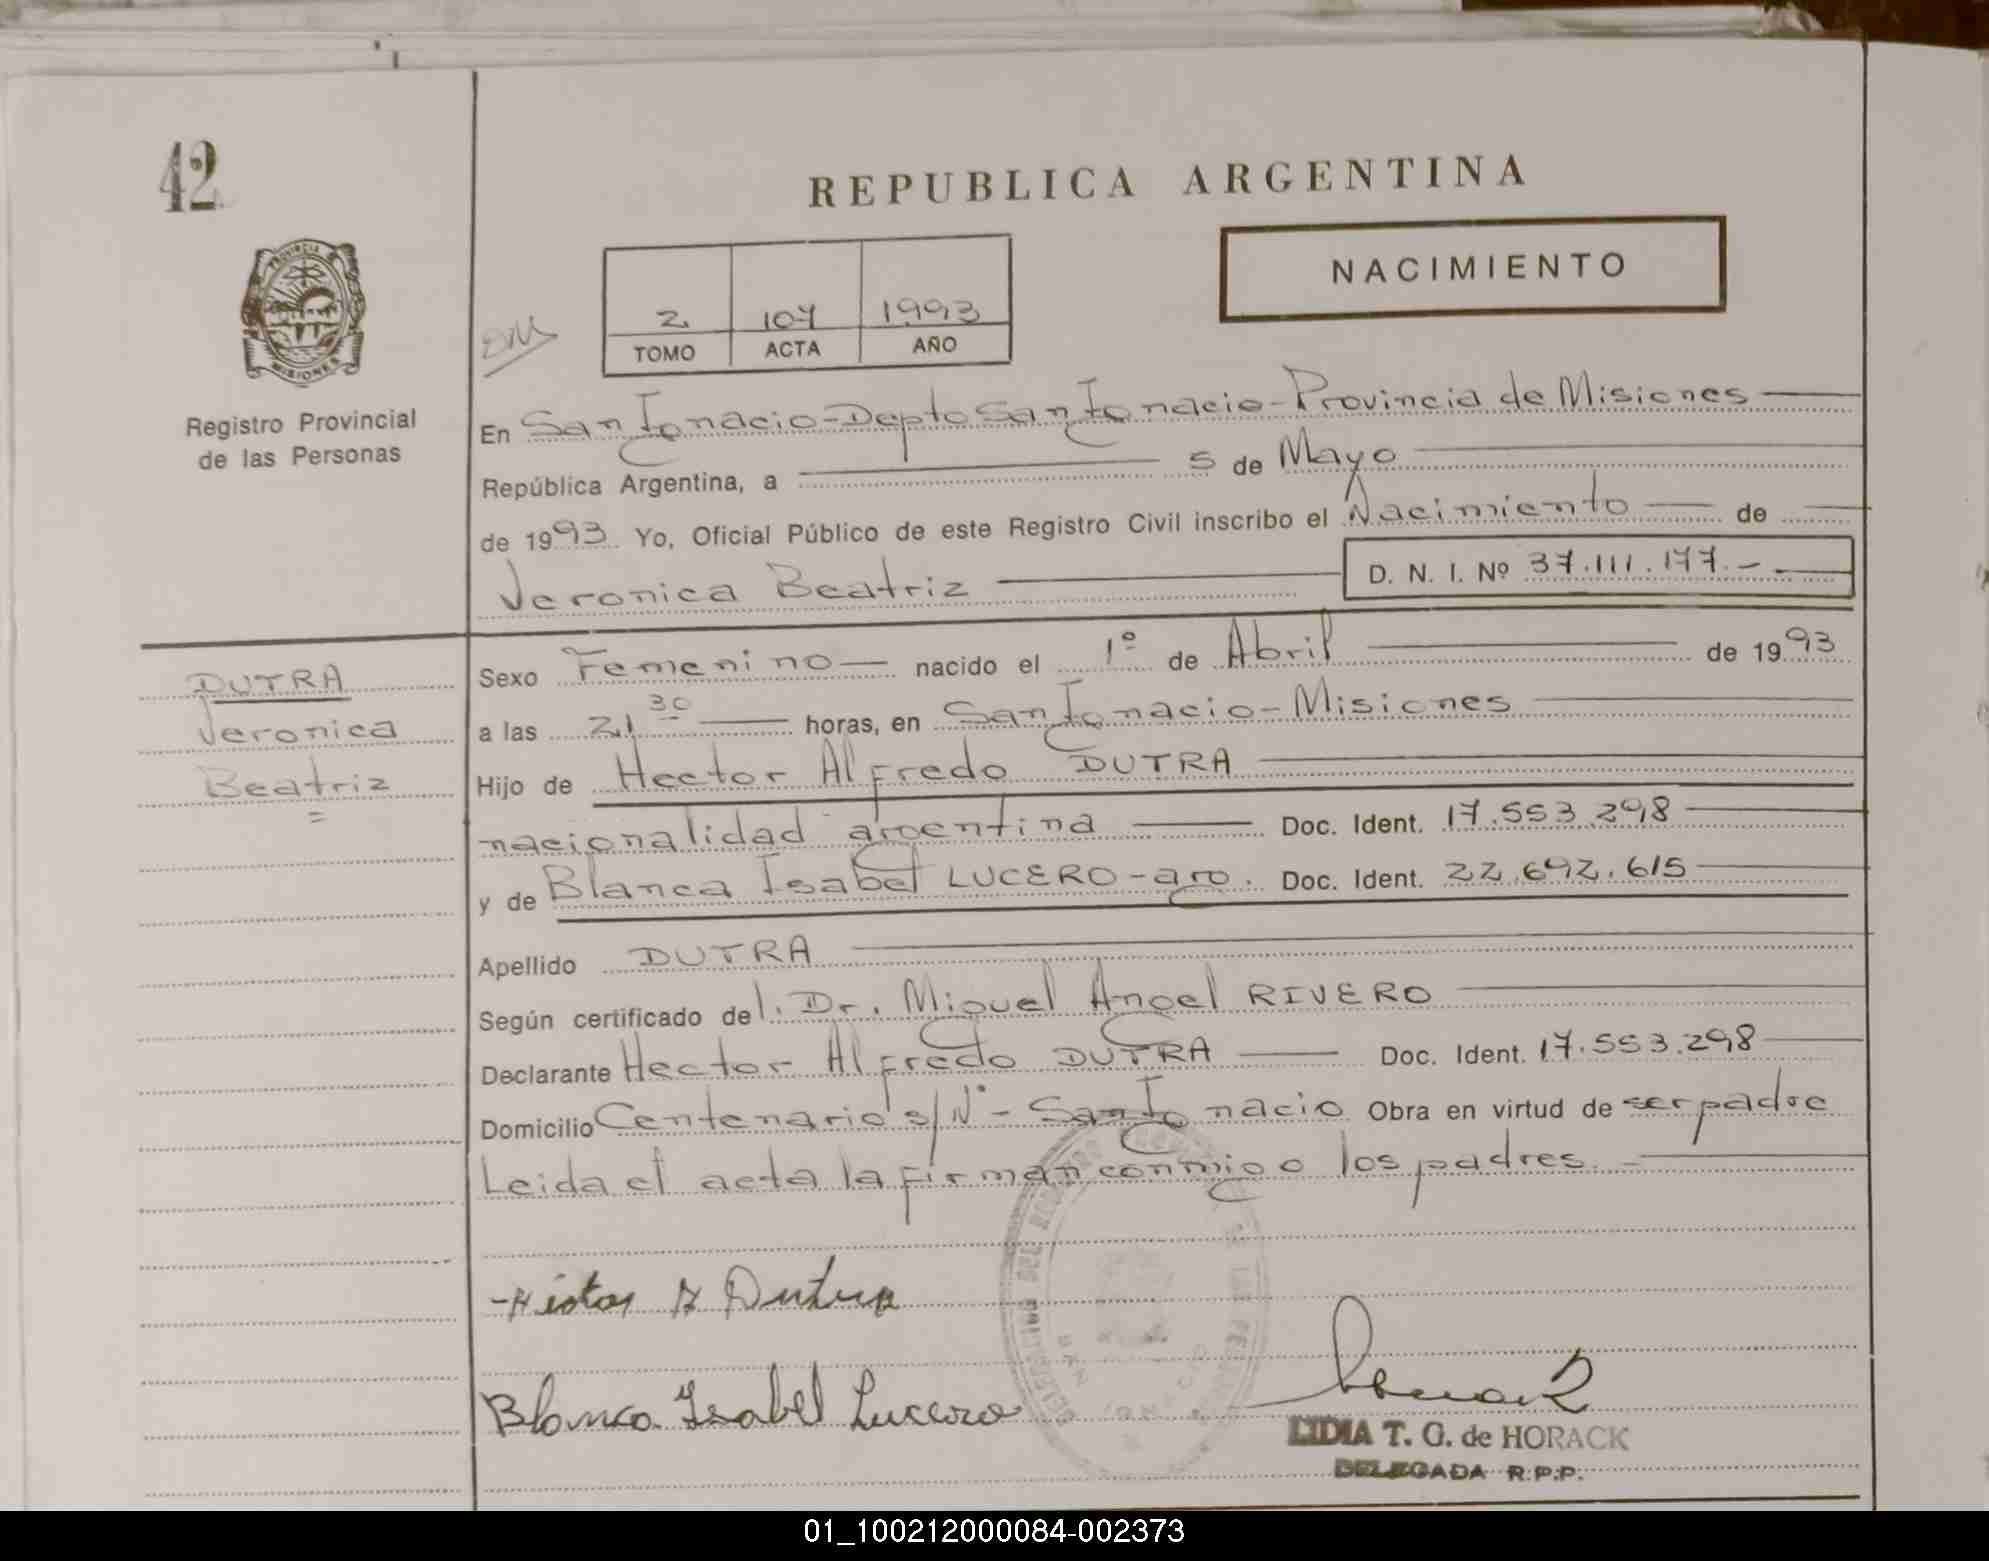 42
REPUBLICA ARGENTINA
NACIMIENTO
PROVINCIA
MISIONES
2 107 1993
TOMO ACTA AÑO
Registro Provincial
de las Personas
En San Ignacio - Depto San Ignacio - Provincia de Misiones
República Argentina, a 5 de Mayo
de 1993 Yo, Oficial Público de este Registro Civil inscribo el Nacimiento de
Veronica Beatriz D. N. I. Nº 37.111.177.-
DUTRA
Veronica
Beatriz
=
Sexo Femenino nacido el 1º de Abril de 1993
a las 21 30 horas, en San Ignacio - Misiones
Hijo de Hector Alfredo DUTRA
nacionalidad argentina Doc. Ident. 17.553.298
y de Blanca Isabel LUCERO - arg. Doc. Ident. 22.692.615
Apellido DUTRA
Según certificado del. Dr. Miguel Angel RIVERO
Declarante Hector Alfredo DUTRA Doc. Ident. 17.553.298
Domicilio Centenario s/Nº - San Ignacio Obra en virtud de ser padre
Leida el acta la firman conmigo los padres.
Blanca Isabel Lucero
LIDIA T. G. de HORACK
DELEGADA R.P.P.
01_100212000084-002373